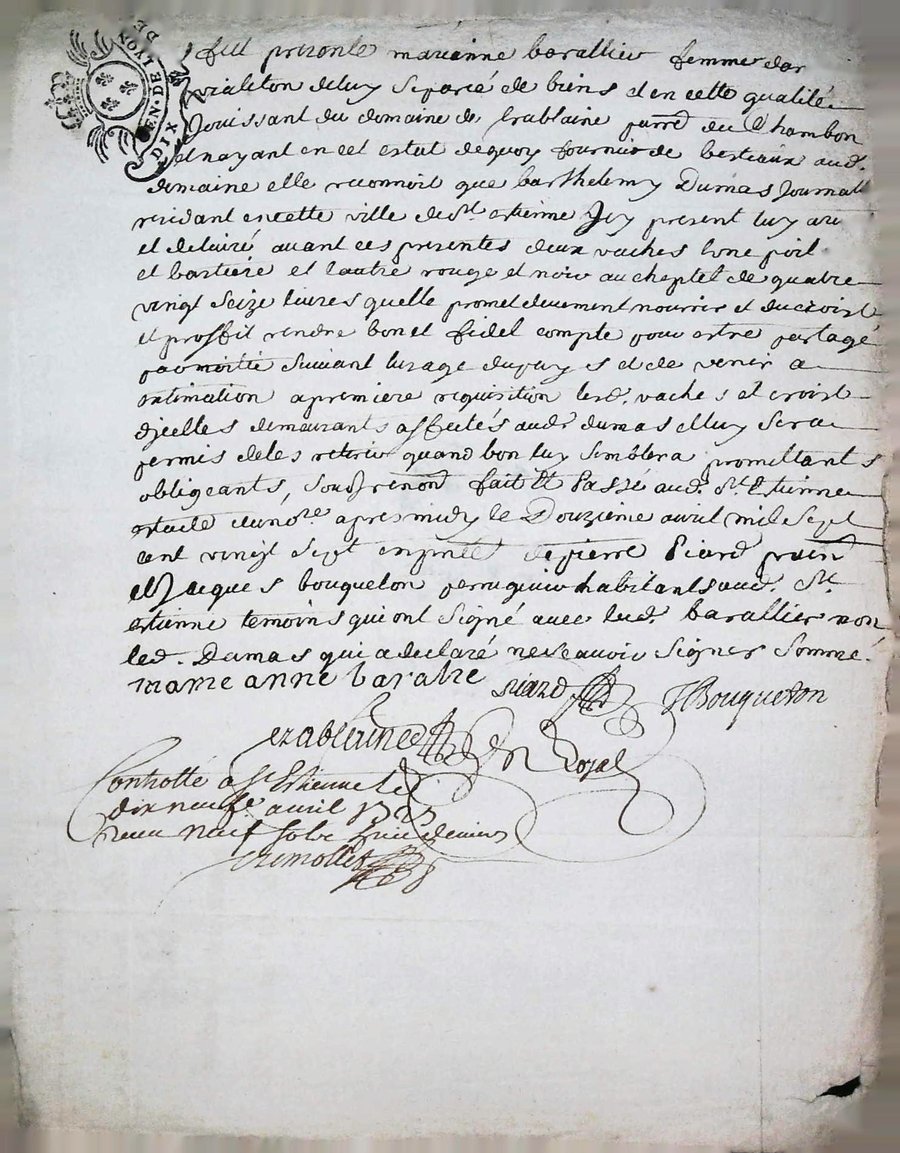 GEN. DE LYON DE
DIX
fut presente marianne barallier femme dor
violeton deluy separée de biens et en cette qualité
Jouissant du domaine de trablaine parr. du Chambon
et nayant en cet estat dequoy fournir de bestiaux aud.
domaine elle reconnoit que barthelemy Dumas Journal
residant encette ville de st. estienne Icy present luy a
et deliuré auant ces presentes deux vaches lune poil
et bartiere et lautre rouge et noir au cheptel de quatre
vingt seize liures quelle promet deuement nourrir et ducroist
et proffit rendre bon et fidel compte pour estre partagé
par moitié suiuant lusage dupays et de venir a
estimation a premiere requisition lesd. vaches et croist
dicelles demeurants affectés aud. dumas et luy sera
permis deles retirer quand bon luy semblera promettants
obligeants, soub renon fait et Passé aud. St. Etienne
estude dunore. apres midy le Douzieme auril mil sept
cent vingt sept enpnce depierre Piard
et Jacques bouqueton perruquier habitants aud. St.
estienne temoins qui ont signé auec lad. barallier non
led. Dumas qui a declaré nesçauoir signer sommé.
marie anne baralie piard JBouqueton
trablaine Royal
Controllé a St. Etienne le
dix neufe. auril 1727
receu neuf sols deniers